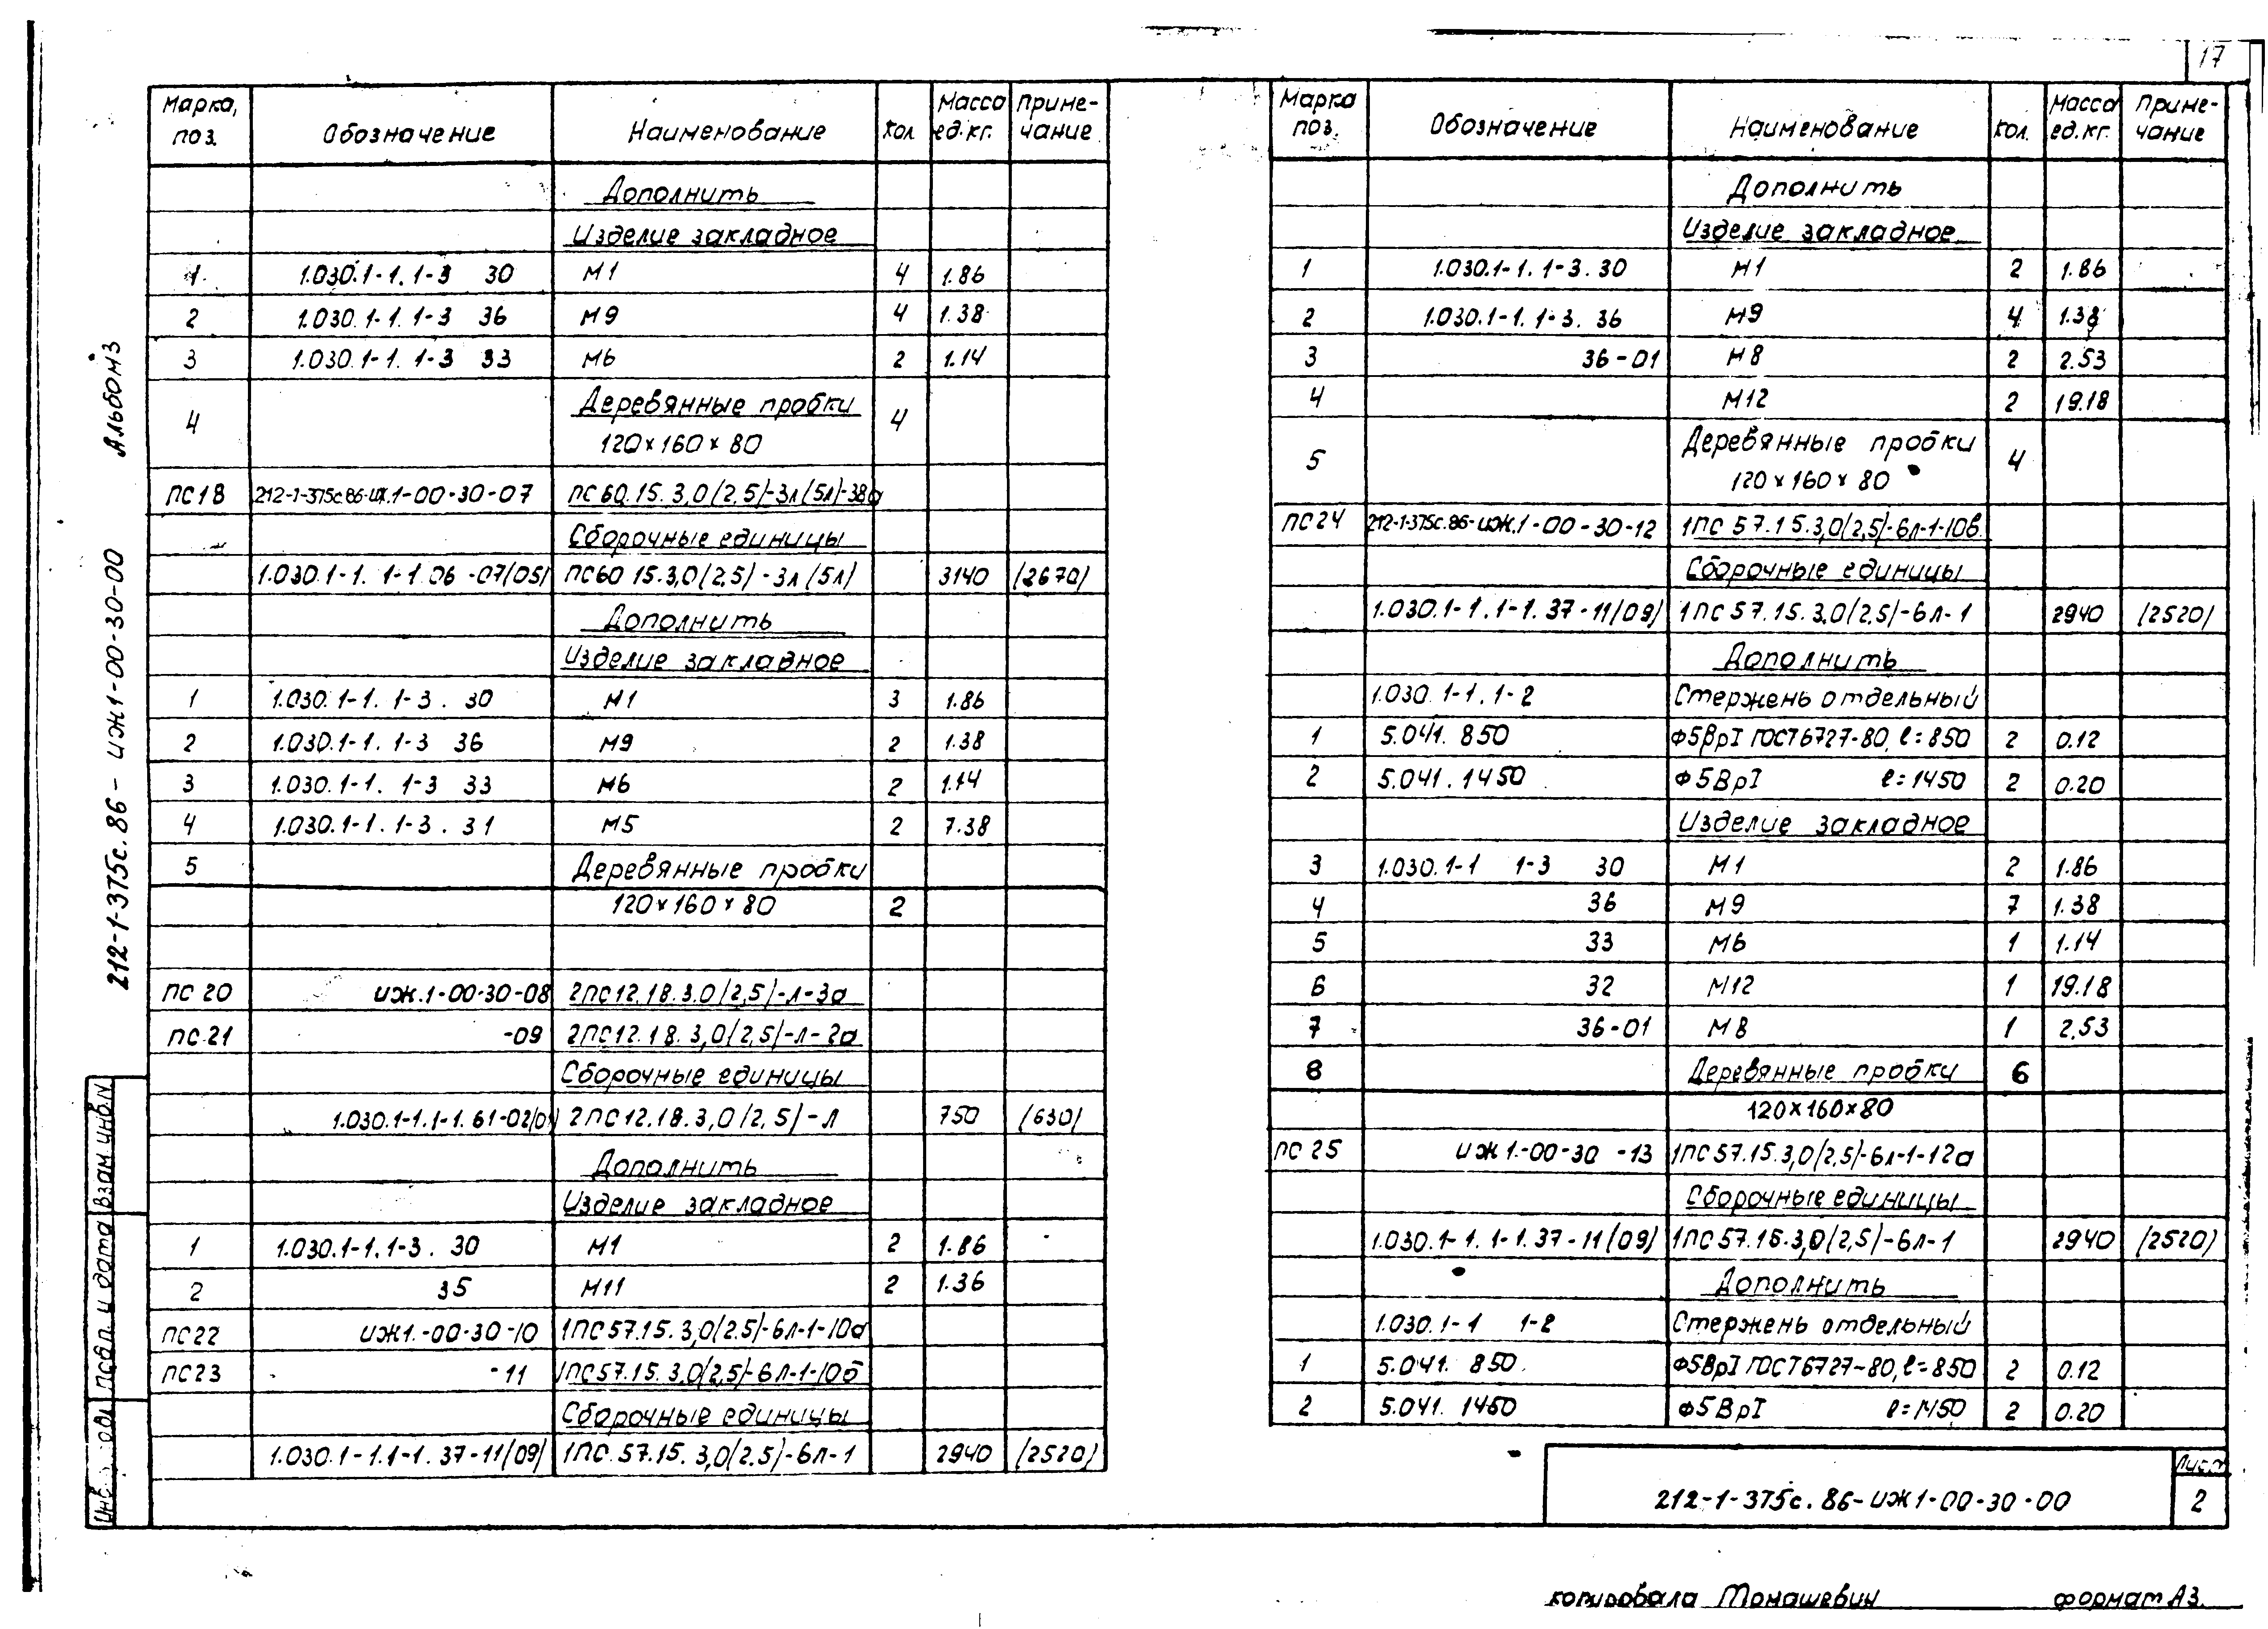 17
Марка, поз. Обозначение Наименование Кол Масса ед.кг. Приме-чание
Дополнить
Изделие закладное
1 1.030.1-1. 1-3 30 М1 4 1.86
2 1.030.1-1. 1-3 36 М9 4 1.38
3 1.030.1-1. 1-3 33 М6 2 1.14
4 Деревянные пробки 4
120×160×80
ПС18 212-1-375с.86-иж.1-00-30-07 ПС60.15.3,0/2,5/-3л(5л)-38а
Сборочные единицы
1.030.1-1. 1-1.06-07/05/ ПС60 15.3,0/2,5/-3л(5л) 3140 /2670/
Дополнить
Изделие закладное
1 1.030.1-1. 1-3. 30 М1 3 1.86
2 1.030.1-1. 1-3 36 М9 2 1.38
3 1.030.1-1. 1-3 33 М6 2 1.14
4 1.030.1-1. 1-3. 31 М5 2 7.38
5 Деревянные пробки
120×160×80 2
ПС 20 иж.1-00-30-08 2ПС12.18.3.0/2,5/-л-3а
ПС21 -09 2ПС12.18.3,0/2,5/-л-2а
Сборочные единицы
1.030.1-1.1-1.61-02/01/ 2ПС12.18.3,0/2,5/-л 750 /630/
Дополнить
Изделие закладное
1 1.030.1-1.1-3. 30 М1 2 1.86
2 35 М11 2 1.36
ПС22 иж1.-00-30-10 1ПС57.15.3,0/2.5/-6л-1-10а
ПС23 -11 1ПС57.15.3.0/2,5/-6л-1-10б
Сборочные единицы
1.030.1-1.1-1. 37-11/09/ 1ПС.57.15.3,0/2.5/-6л-1 2940 /2520/
Марка поз. Обозначение Наименование Кол. Масса ед.кг. Приме-чание
Дополнить
Изделие закладное
1 1.030.1-1. 1-3. 30 М1 2 1.86
2 1.030.1-1. 1-3. 36 М9 4 1.38
3 36-01 М8 2 2.53
4 М12 2 19.18
5 Деревянные пробки 4
120×160×80
ПС24 212-1-375с.86-иж.1-00-30-12 1ПС57.15.3,0/2,5/-6л-1-10в
Сборочные единицы
1.030.1-1.1-1.37-11/09/ 1ПС57.15.3.0/2,5/-6л-1 2940 /2520/
Дополнить
1.030.1-1.1-2 Стержень отдельный
1 5.041. 850 Ф5ВрI ГОСТ6727-80, ℓ=850 2 0.12
2 5.041.1450 Ф5ВрI ℓ=1450 2 0.20
Изделие закладное
3 1.030.1-1 1-3 30 М1 2 1.86
4 36 М9 7 1.38
5 33 М6 1 1.14
6 32 М12 1 19.18
7 36-01 М8 1 2,53
8 Деревянные пробки 6
120×160×80
ПС 25 иж1.-00-30-13 1ПС57.15.3,0/2,5/-6л-1-12а
Сборочные единицы
1.030.1-1. 1-1.37-11/09/ 1ПС57.15.3,0/2,5/-6л-1 2940 /2520/
Дополнить
1.030.1-1 1-2 Стержень отдельный
1 5.041. 850. Ф5ВрI ГОСТ6727-80, ℓ=850 2 0.12
2 5.041. 1450 Ф5ВрI ℓ=1450 2 0.20
212-1-375с.86-иж1-00-30-00
Лист
2
копировала Томашевич формат А3.
212-1-375с.86-иж1-00-30-00 Альбом 3
Взам. инв.N
Подп. и дата
Инв. подл